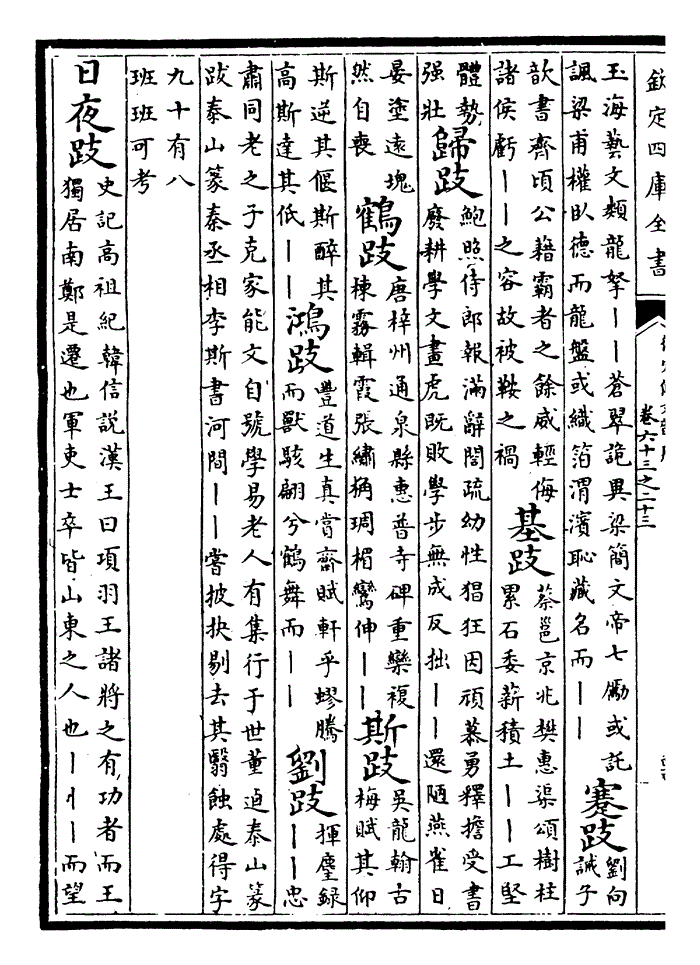 欽定四庫全書
卷六十三之二十三
玉海藝文類龍拏丨丨蒼翠詭異梁簡文帝七勵或託
諷梁甫權臥德而龍盤或織箔渭濱恥藏名而丨丨
蹇跂
劉向
誡子
歆書齊頃公藉霸者之餘威輕侮
諸侯虧丨丨之容故被鞍之禍
基跂
蔡邕京兆樊惠渠頌樹柱
累石委薪積土丨丨工堅
體勢
强壯
歸跂
鮑照侍郎報滿辭閤疏幼性猖狂因頑慕勇釋擔受書
廢耕學文畫虎既敗學步無成反拙丨丨還陋燕雀日
晏塗遠塊
然自喪
鶴跂
唐梓州通泉縣惠普寺碑重欒複
棟霧輯霞張繡桷琱楣鸞伸丨丨
斯跂
吳龍翰古
梅賦其仰
斯逆其偃斯醉其
高斯達其低丨丨
鴻跂
豐道生真賞齋賦軒乎蟉騰
而獸駭翩兮鶴舞而丨丨
劉跂
揮麈録
丨丨忠
肅同老之子克家能文自號學易老人有集行于世董逌泰山篆
跋泰山篆秦丞相李斯書河間丨丨嘗披抉剔去其翳蝕處得字
九十有八
班班可考
日夜跂
史記高祖紀韓信説漢王曰項羽王諸將之有功者而王
獨居南鄭是遷也軍吏士卒皆山東之人也丨丨丨而望